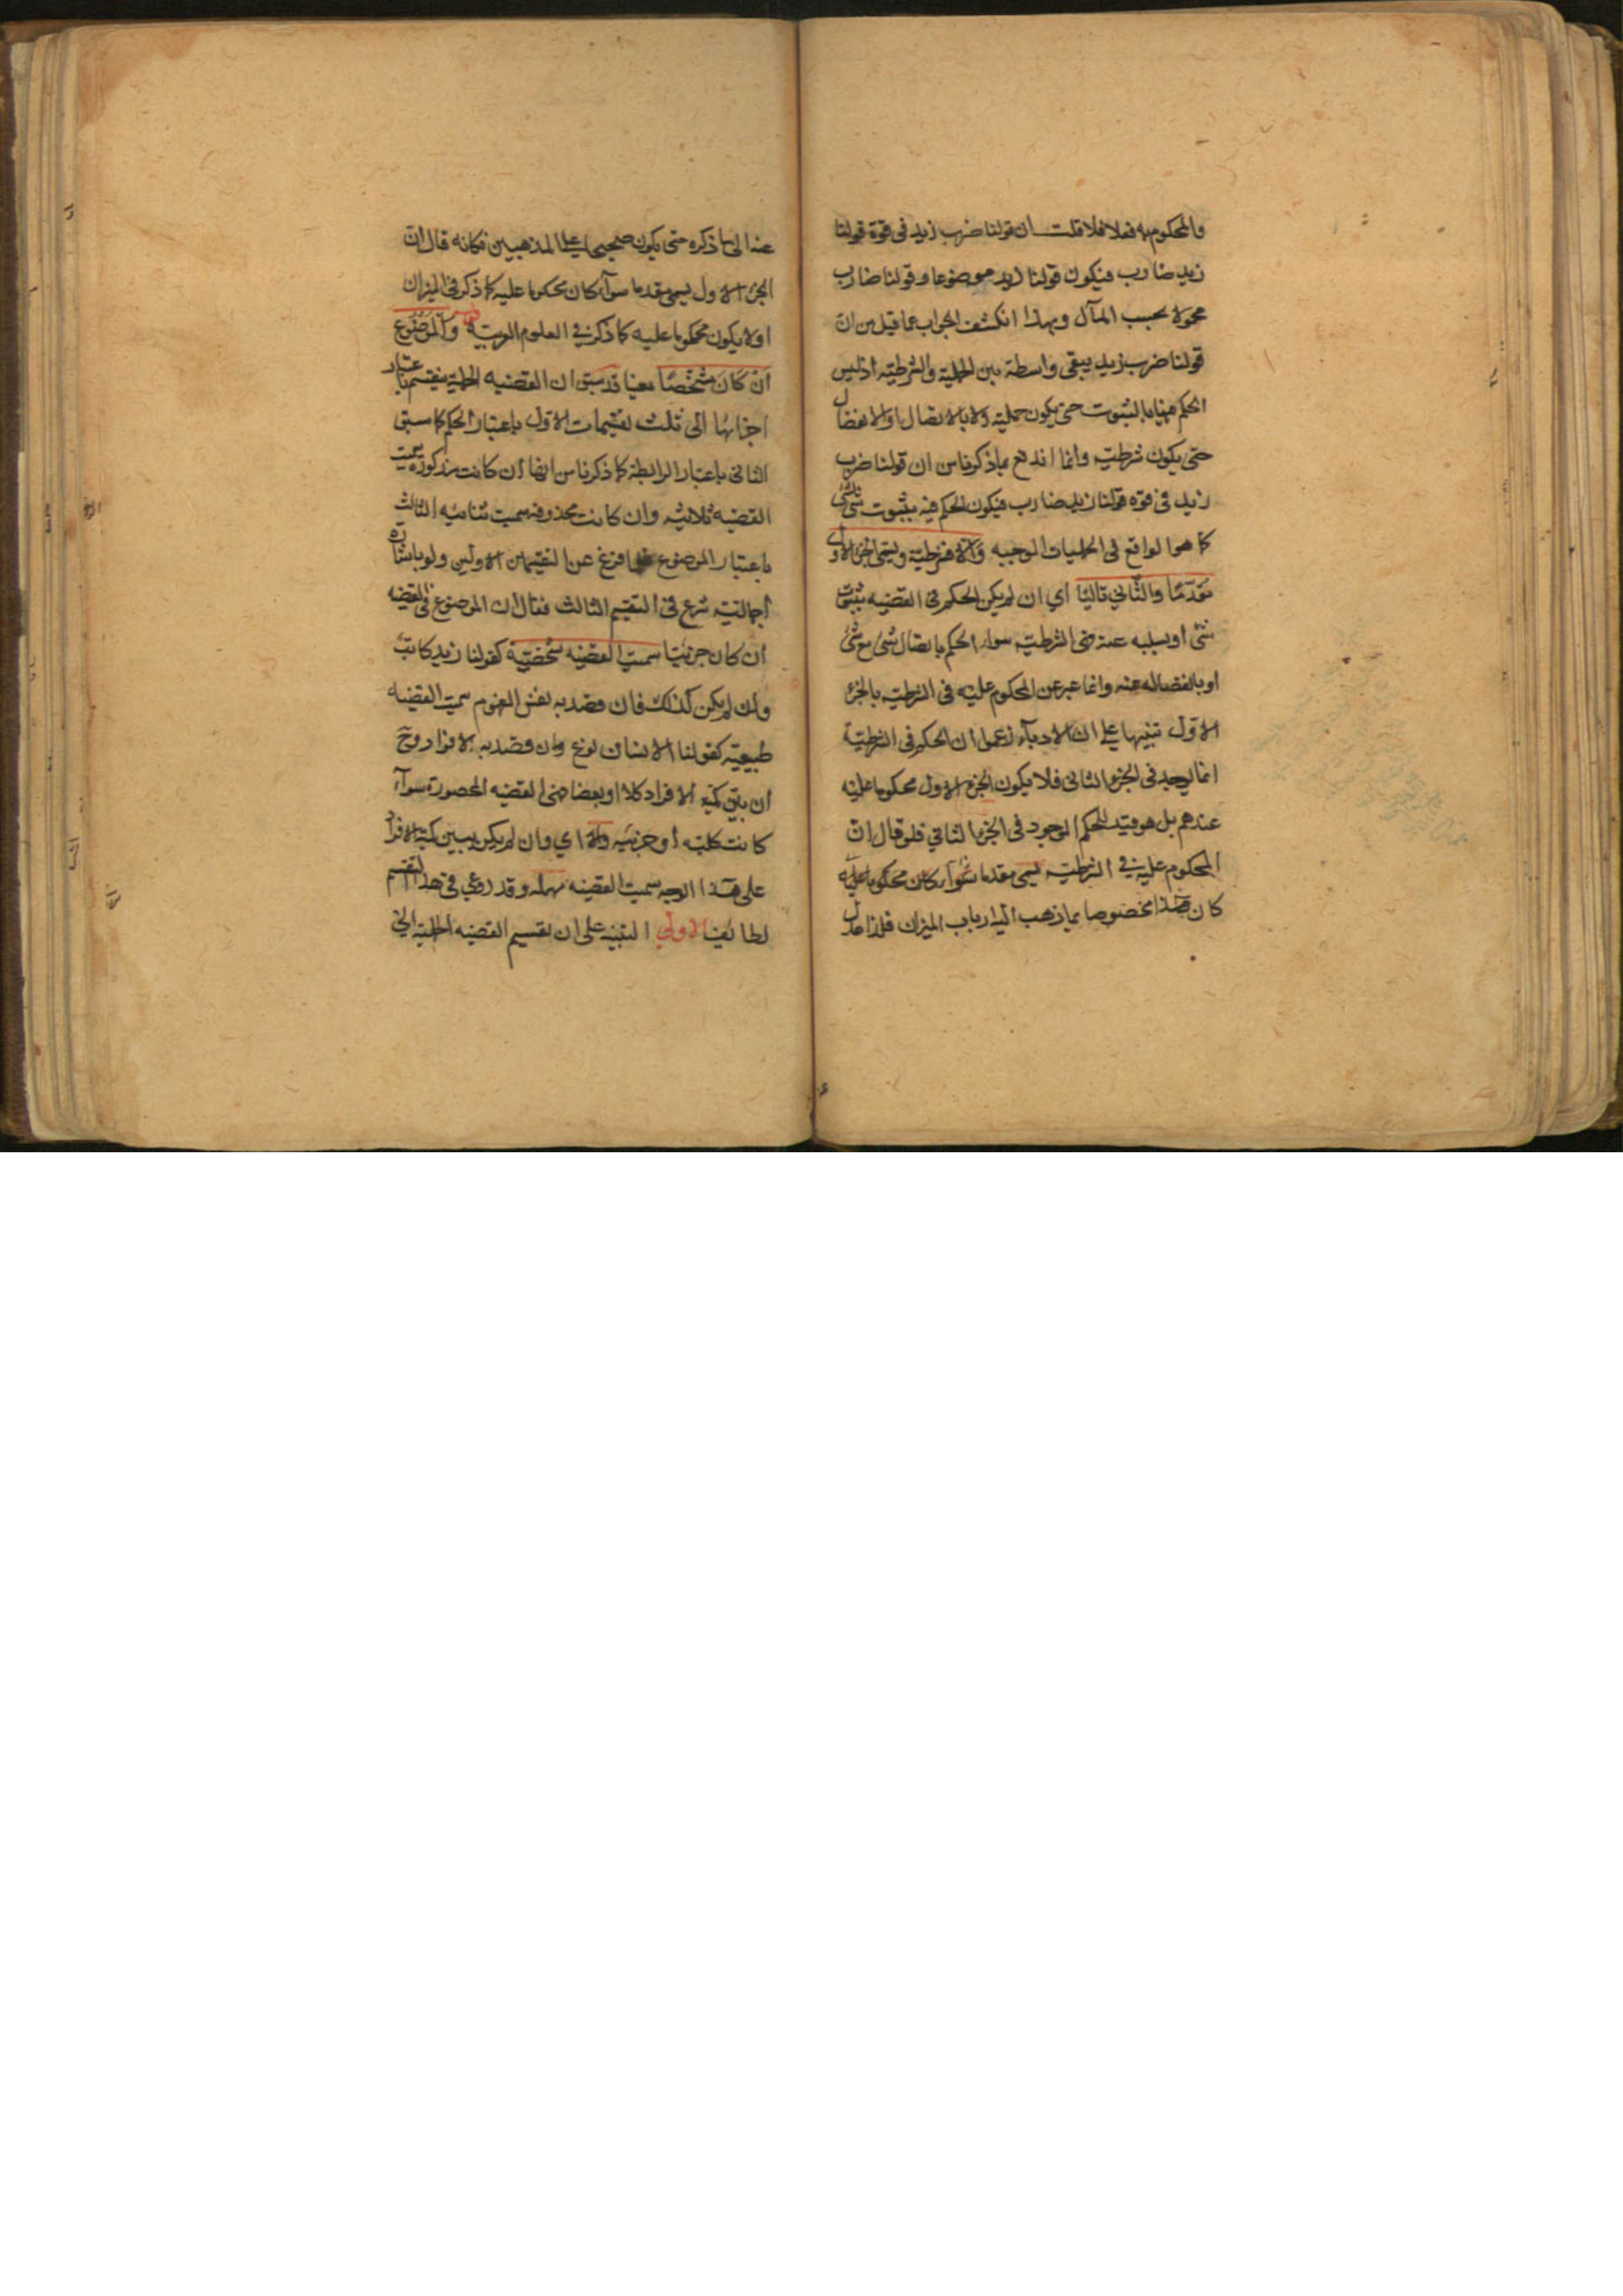 والمحكوم به فعلا فلا قلت ان قولنا ضرب زيد في قوة قولنا
زيد ضارب فيكون قولنا زيد موضوعا وقولنا ضارب
محمولا بحسب المآل وبهذا انكشف الجواب عما قيل من ان
قولنا ضرب زيد يبقى واسطة بين الحملية والشرطية اذ ليس
الحكم ههنا بالثبوت حتى يكون حملية ولا بالاتصال او الانفصال
حتى يكون شرطية وانما اندفع بما ذكرنا من ان قولنا ضرب
زيد في قوة قولنا زيد ضارب فيكون الحكم فيه بثبوت شئ لشئ
كما هو الواقع في الحمليات الموجبه والا فشرطية ويسمى الجزء الاول
مقدما والثاني تاليا أي ان لم يكن الحكم في القضيه بثبوت
شئ او بسلبه عنه فهي الشرطية سواء الحكم باتصال شئ مع شئ
او بانفصاله عنه وانما عبر عن المحكوم عليه في الشرطية بالجزء
الاول تنبيها على ان الادباء زعموا ان الحكم في الشرطية
انما يوجد في الجزء الثاني فلا يكون الجزء الاول محكوما عليه
عندهم بل هو قيد للحكم الموجود في الجزء الثاني فلو قال ان
المحكوم عليه في الشرطية يسمى مقدما سواء كان محكوما عليه
كان هذا مخصوصا بما ذهب اليه ارباب الميزان فلذا عدل
عنه الى ما ذكره حتى يكون صحيحا على المذهبين فكانه قال ان
الجزء الاول يسمى مقدما سواء كان محكوما عليه كما ذكر في الميزان
او لا يكون محكوما عليه كما ذكر في العلوم العربية والموضوع
ان كان مشخصا معينا قد سبق ان القضيه الحملية ينقسم باعتبار
اجزائها الى ثلث تقسيمات الاول باعتبار الحكم كما سبق
الثاني باعتبار الرابطة كما ذكرنا من انها ان كانت مذكورة سميت
القضيه ثلاثيه وان كانت محذوفه سميت ثنائيه الثالث
باعتبار الموضوع فرغ عن التقسيمين الاولين ولو باشارة
اجمالية شرع في التقسيم الثالث فقال ان الموضوع في القضيه
ان كان جزئيا سميت القضيه شخصية كقولنا زيد كاتب
وان لم يكن كذلك فان قصد به نفس المفهوم سميت القضيه
طبيعية كقولنا الانسان نوع وان قصد به الافراد وح
ان بين كمية الافراد كلا او بعضا فهي القضيه المحصورة سواء
كانت كليه أو جزئيه والا اي وان لم يكن يبين كمية الافراد
على هذا الوجه سميت القضيه مهمله وقد روعي في هذا التقسيم
لطائف الاولى التنبيه على ان تقسيم القضيه الحملية الى